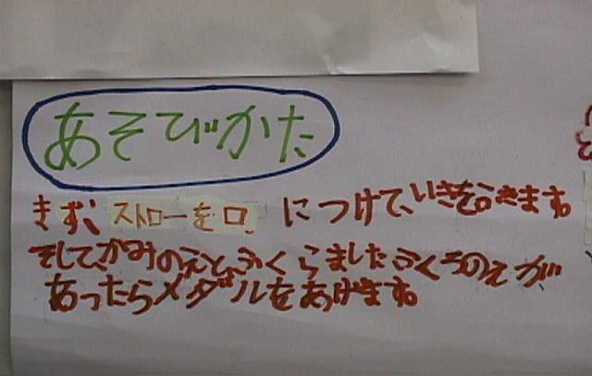 あそびかた
まず、ストローを口につけて、いきをふきます。
そして、かみのえと、ふくらましたふくろのえが
あったらメダルをあげます。